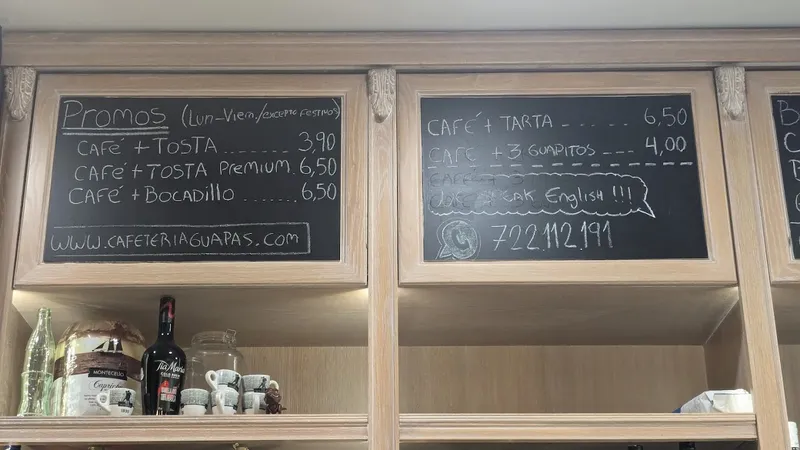 Promos (Lun-Viern./excepto festivos)
CAFÉ + TOSTA ........ 3,90
CAFÉ + TOSTA PREMIUM. 6,50
CAFÉ + BOCADILLO ....... 6,50
WWW.CAFETERIAGUAPAS.COM
CAFÉ + TARTA ------- 6,50
CAFE + 3 GUAPITOS --- 4,00
English !!!
722.112.191
MONTECELIO
Capricho
Tia Maria
COLD BREW